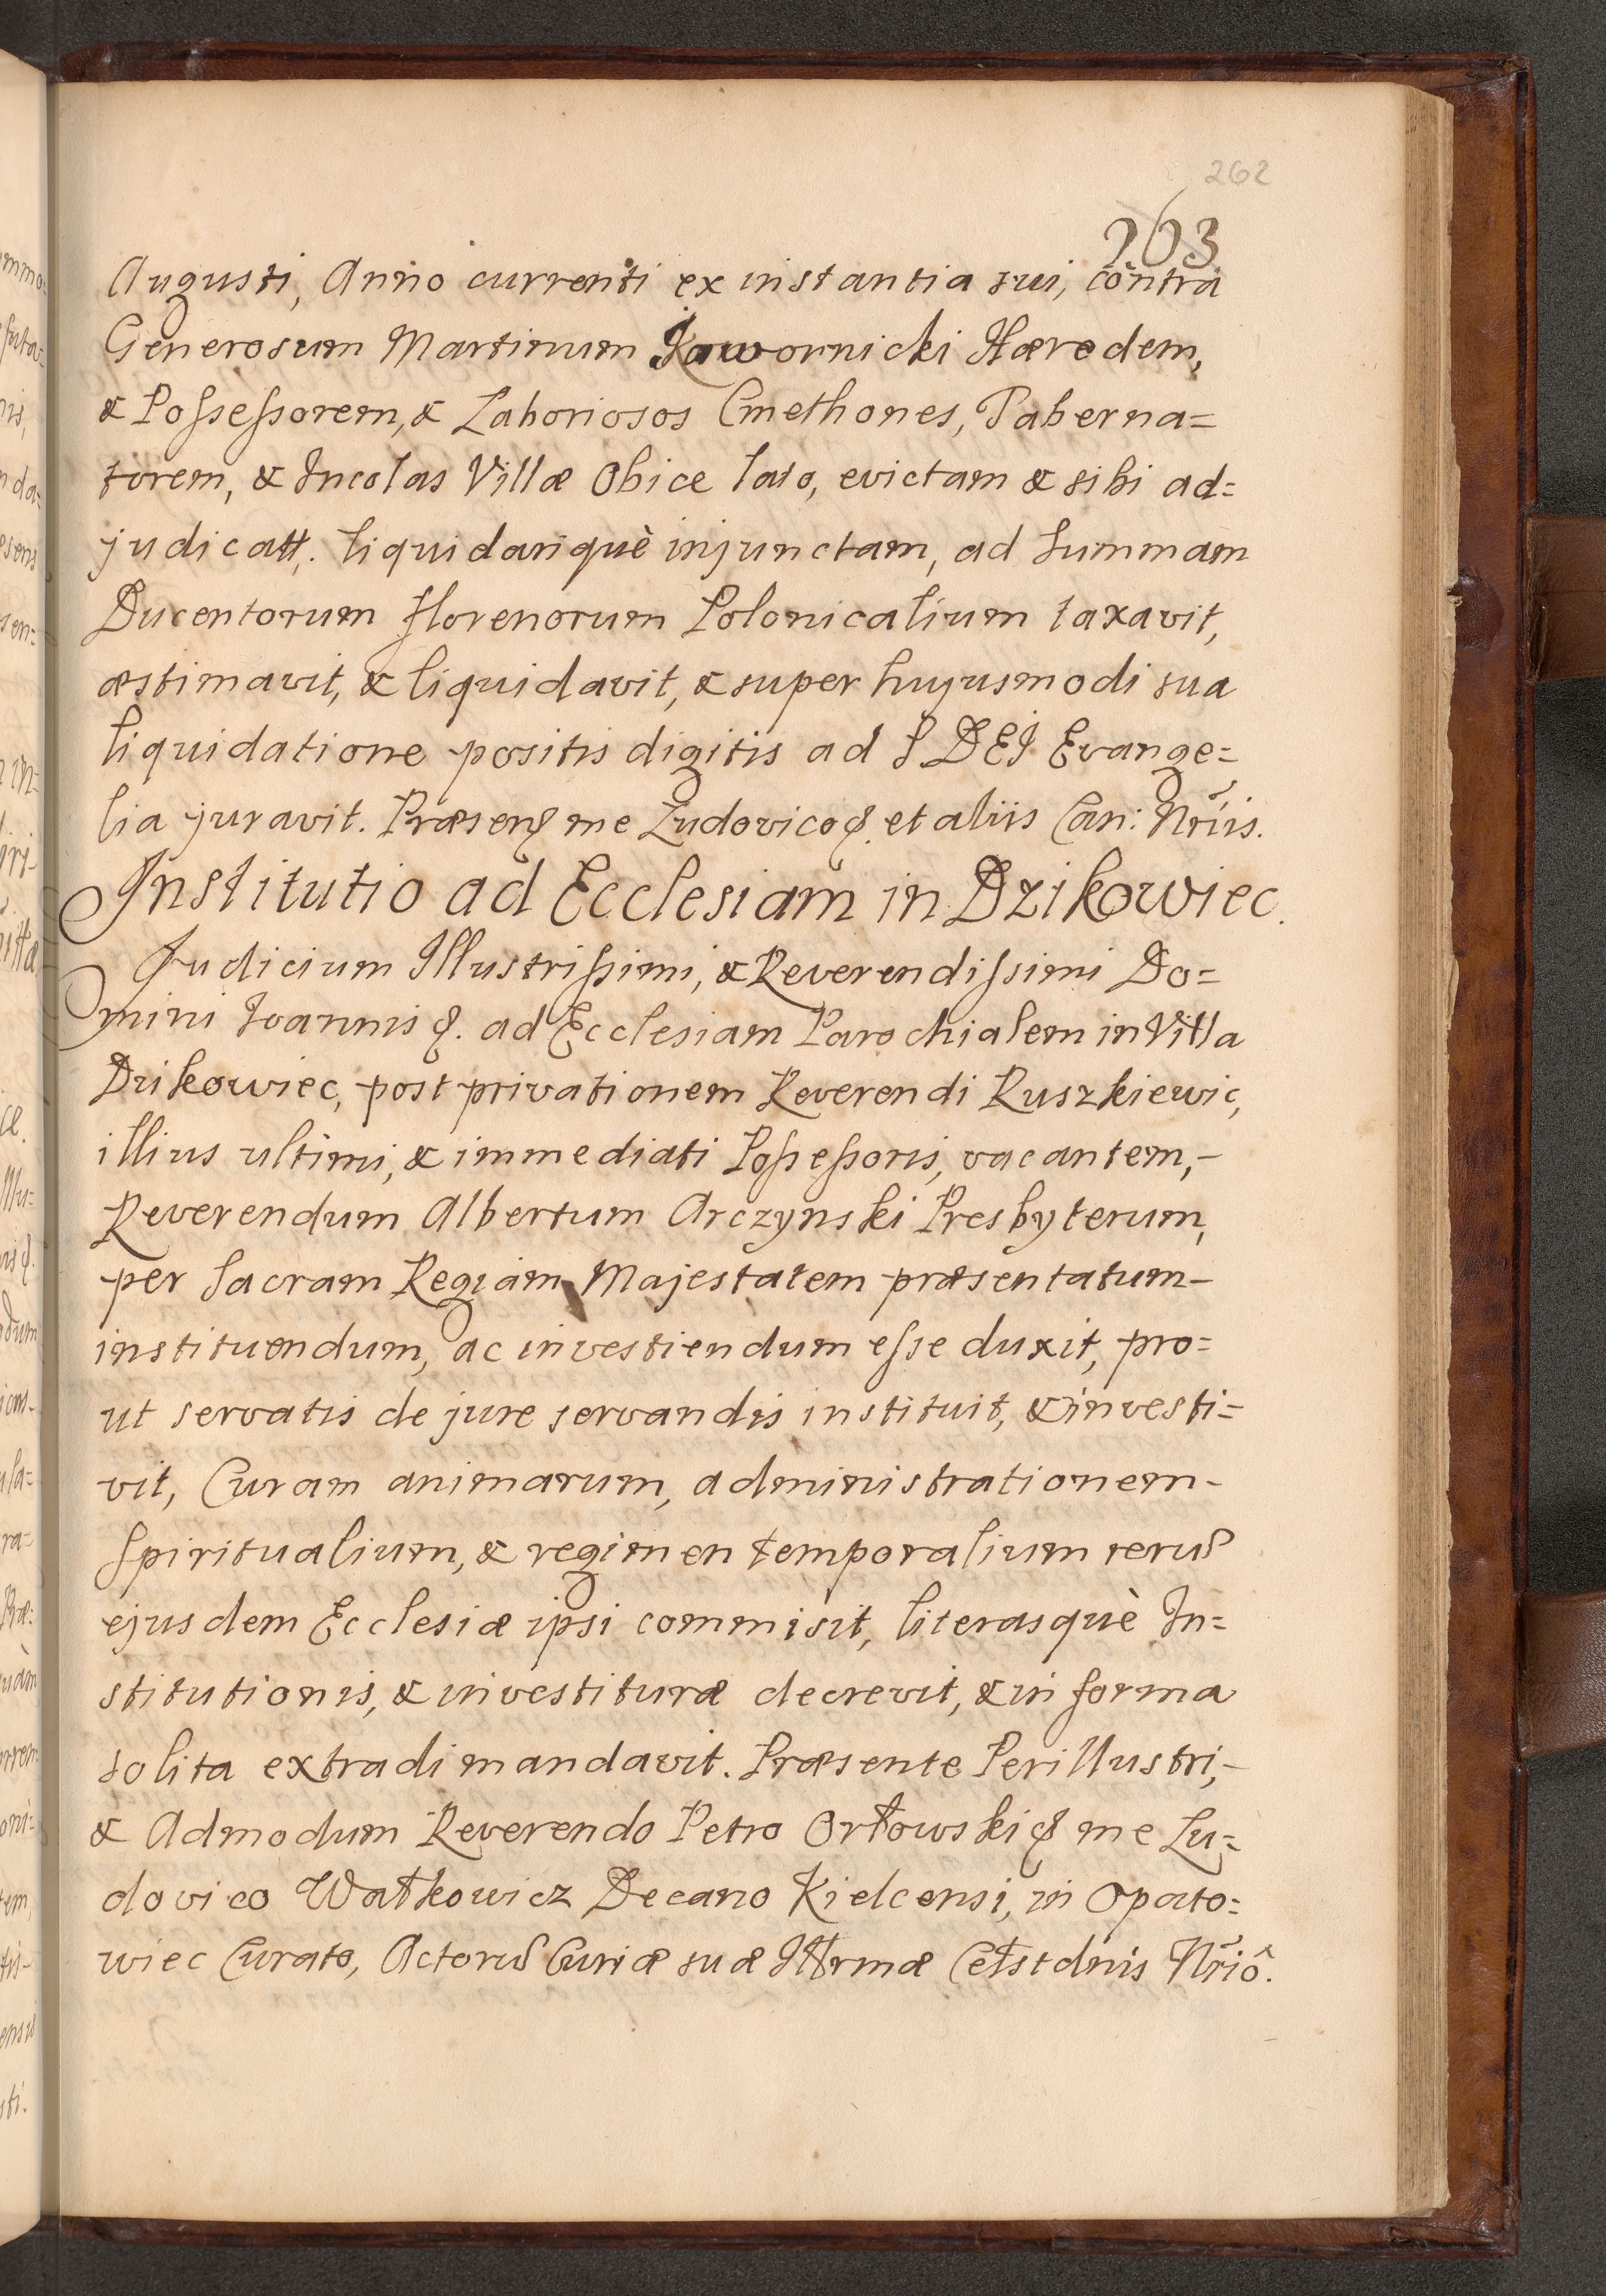 262
263
Augusti, Anno currenti ex instantia sui, contra
Generosum Martinum Jawornicki Hæredem,
& Possessorem, & Laboriosos Cmethones, Taberna=
torem, & Incolas Villæ Obice lato, evictam & sibi ad=
judicatt. liquidariquè injunctam, ad Summam
Ducentorum florenorum Polonicalium taxavit,
æstimavit, & liquidavit, & super hujusmodi sua
liquidatione positis digitis ad S DEI Evange=
lia juravit. Præsen& me Ludovico &. et aliis Can: Nrĩis.
Institutio ad Ecclesiam in Dzikowiec.
Judicium Illustrissimi, & Reverendissimi Do=
mini Joannis &. ad Ecclesiam Parochialem in Villa
Dzikowiec, post privationem Reverendi Ruszkiewic,
illius ultimi, & immediati Possessoris, vacantem,-
Reverendum Albertum Arczynski Presbyterum,
per Sacram Regiam Majestatem præsentatum-
instituendum, ac investiendum esse duxit, pro=
ut servatis de jure servandis instituit, & investi=
vit, Curam animarum, administrationem-
Spiritualium, & regimen temporalium rerum
ejusdem Ecclesiæ ipsi commisit, literasquè In=
stitutionis, & investituræ decrevit, & in forma
solita extradi mandavit. Præsente Perillustri,-
& Admodum Reverendo Petro Orłowski & me Lu=
dovico Wałkowicz Decano Kielcensi, in Opato=
wiec Curato, Actorum Curiæ suæ Illrmæ Celstdnis Nrĩô.